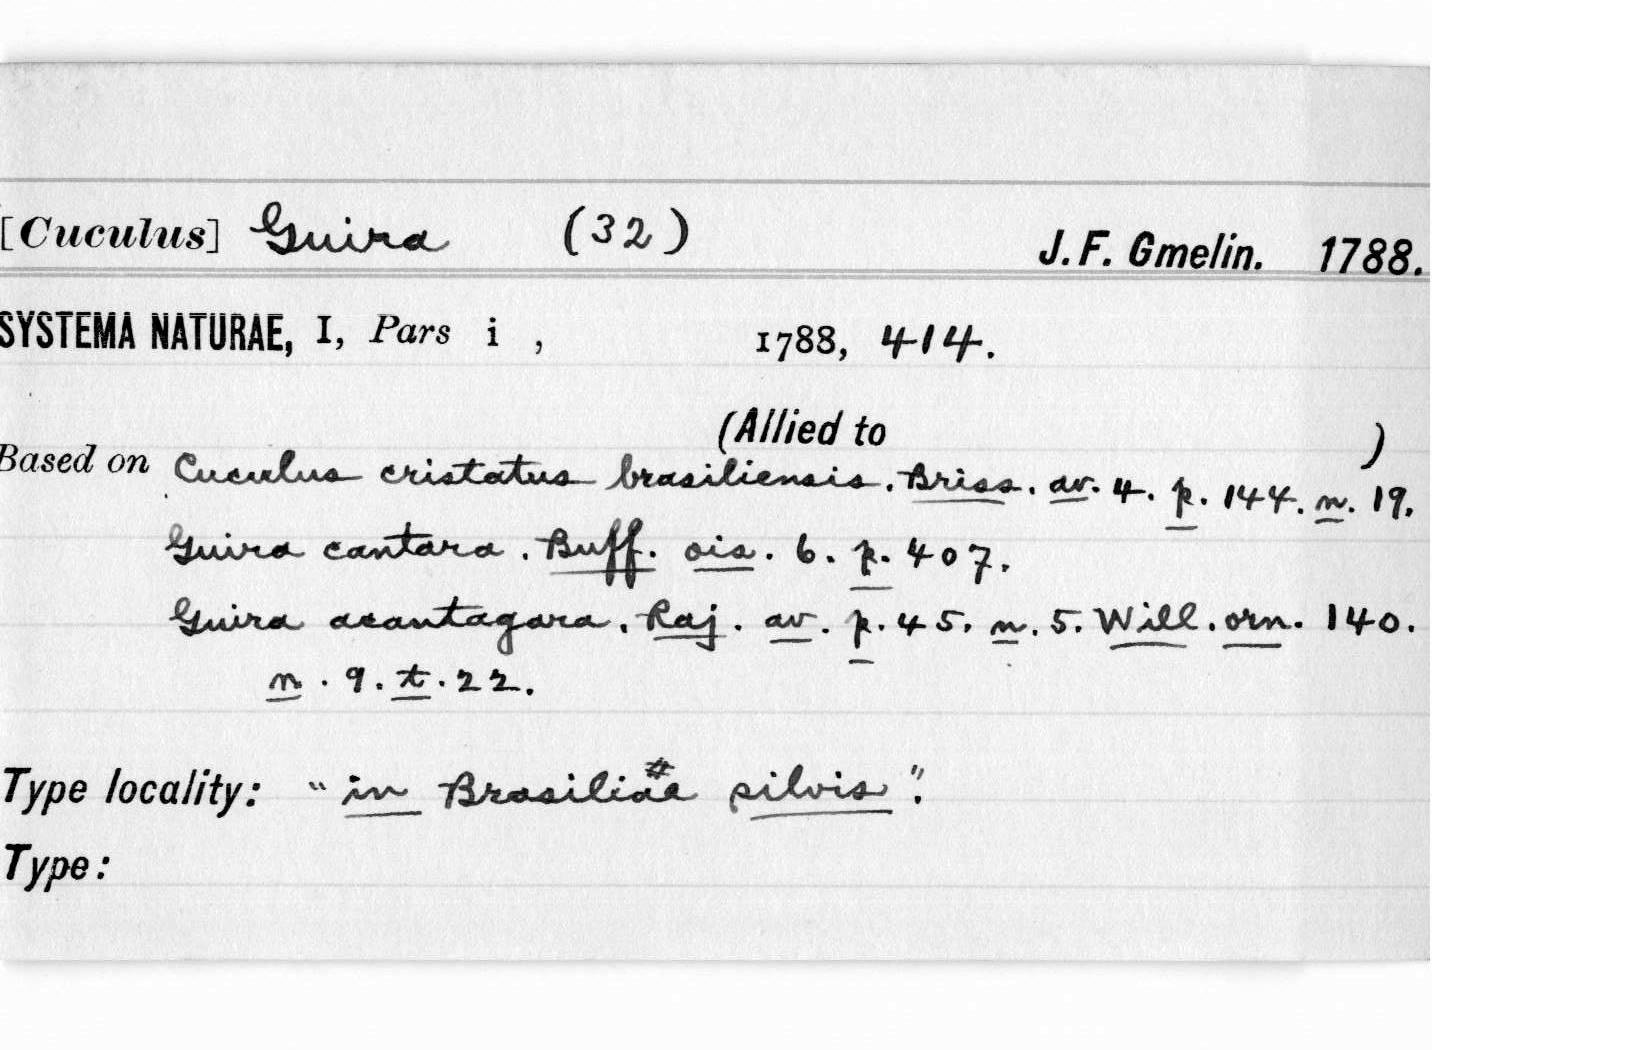 [Cuculus] Guira (32) J. F. Gmelin. 1788.
SYSTEMA NATURAE, I, Pars i , 1788, 414.
(Allied to )
Based on Cuculus cristatus brasiliensis. Briss. av. 4. p. 144. n. 19.
Guira cantara. Buff. ois. 6. p. 407.
Guira acantagara. Raj. av. p. 45. n. 5. Will. orn. 140.
n. 9. t. 22.
Type locality: "in Brasiliae # silvis".
Type: